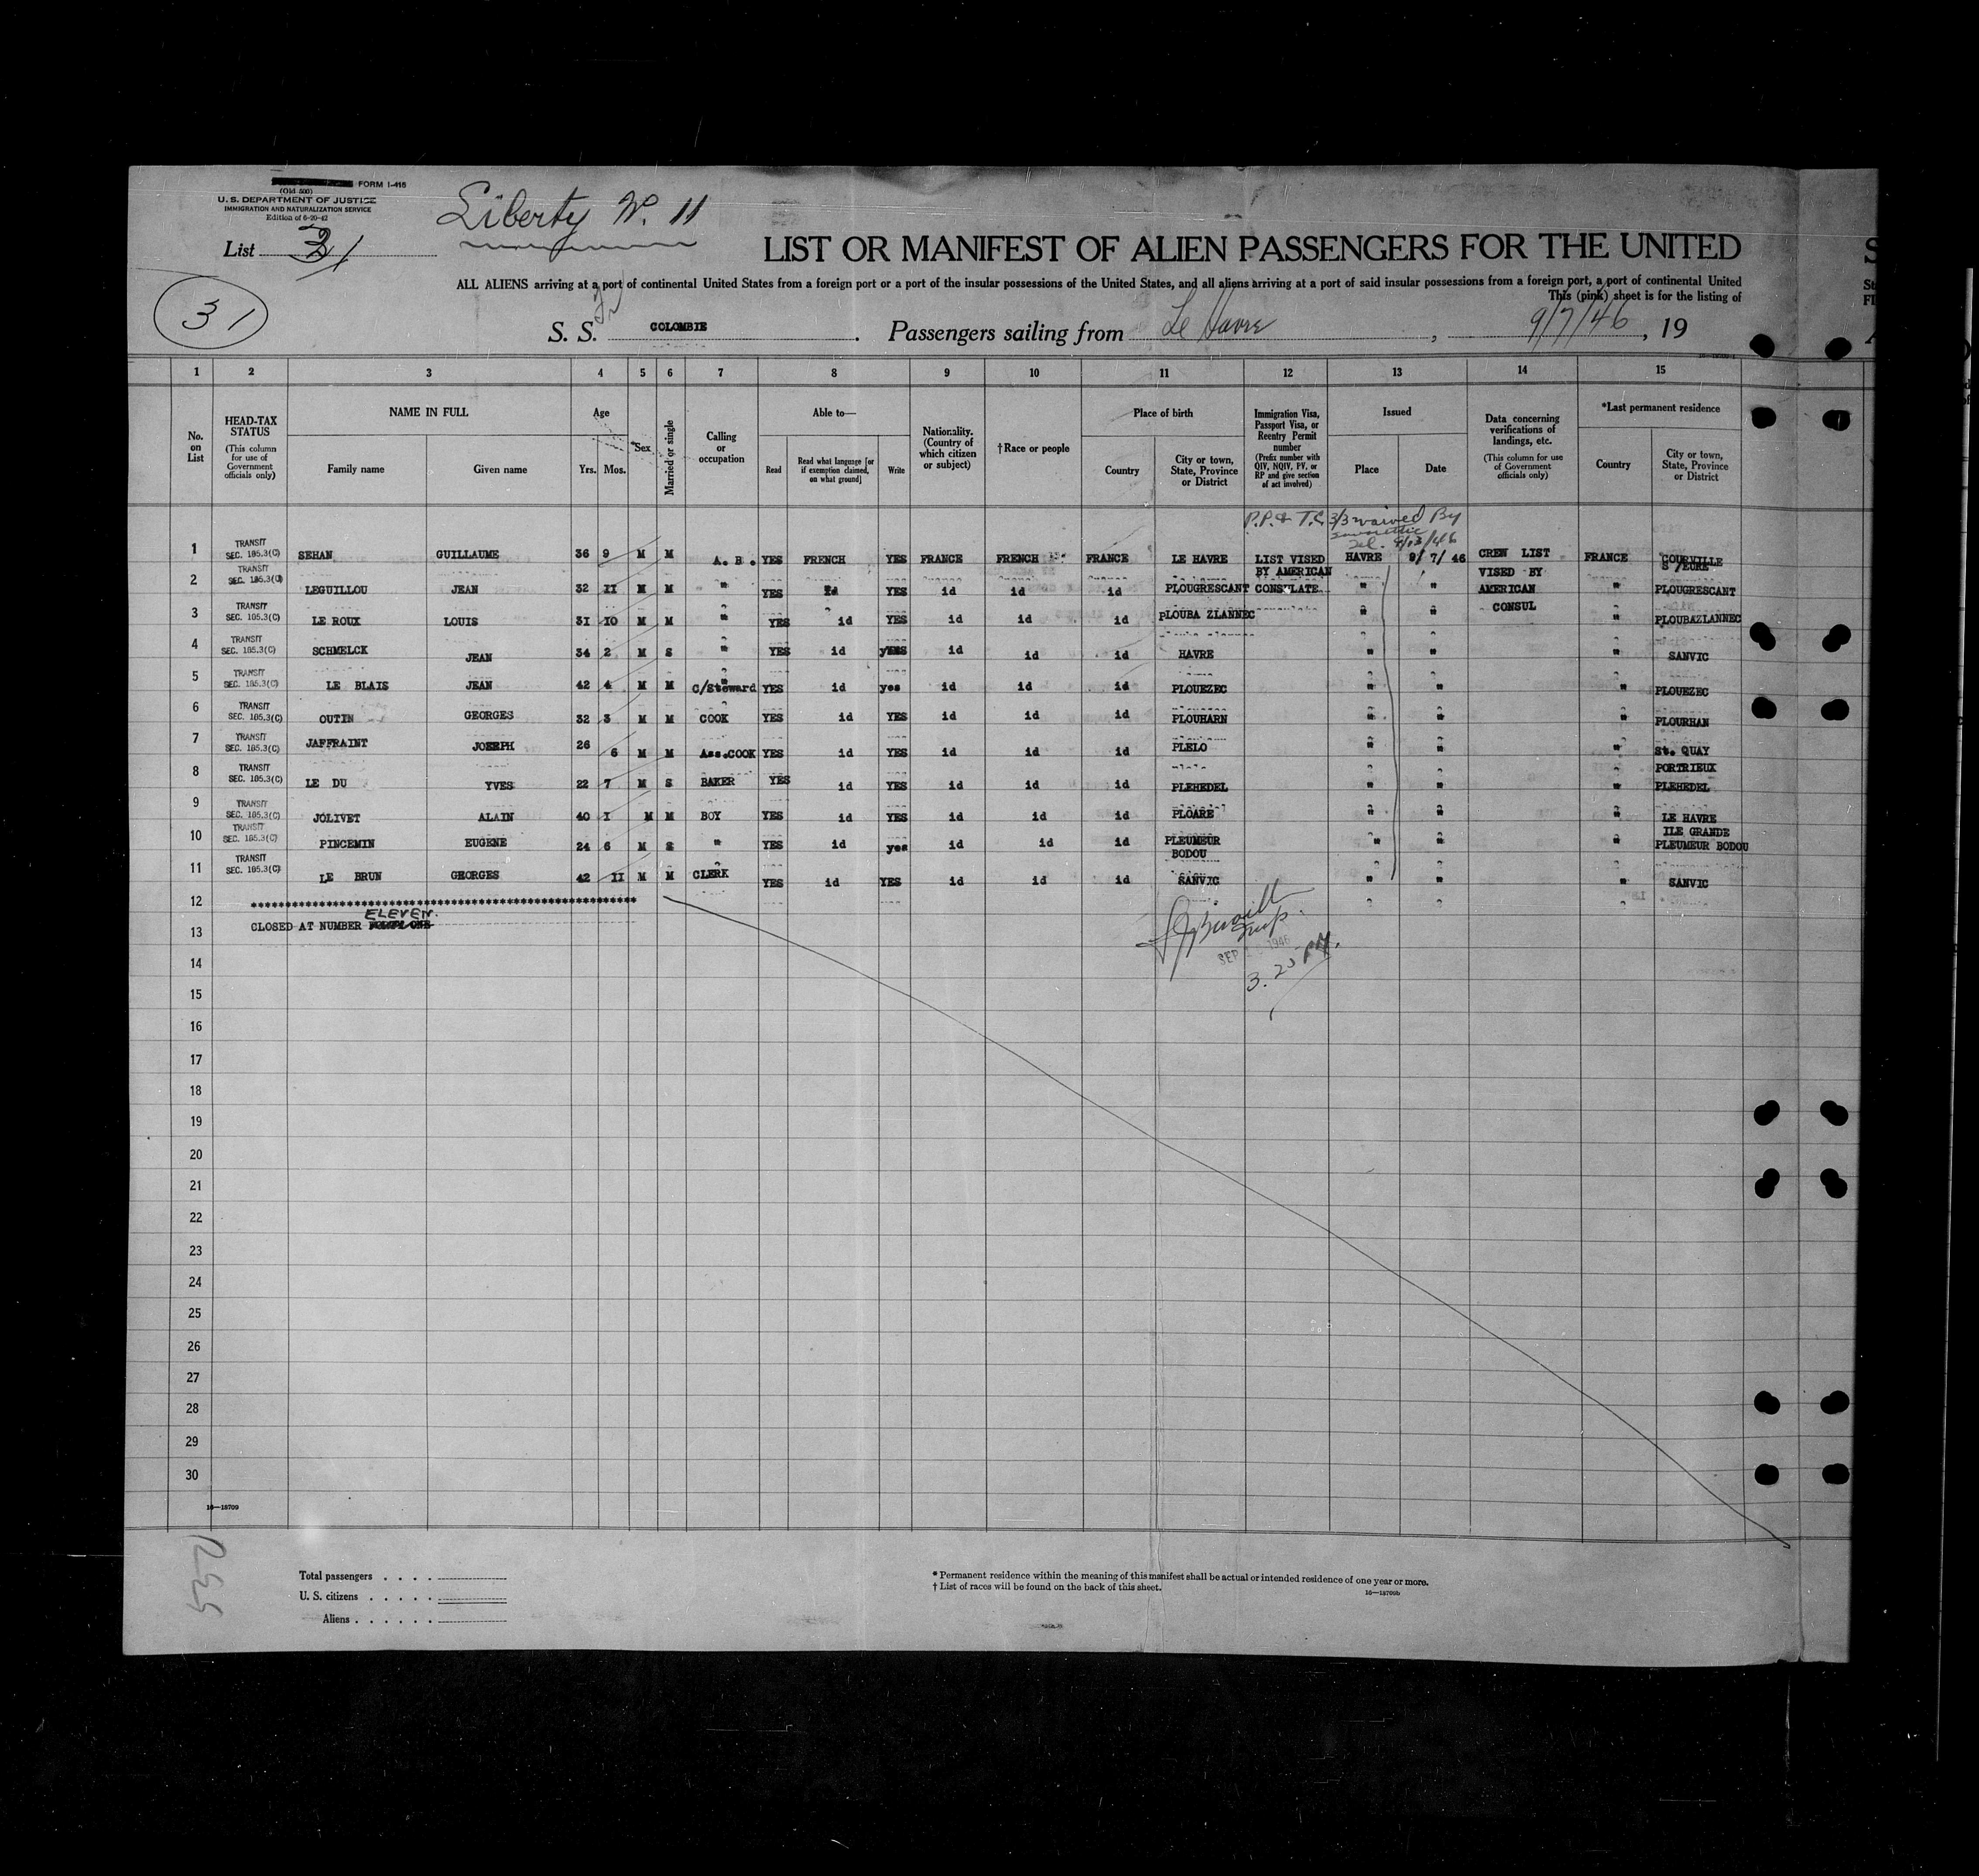 FORM I-415
(Old 500)
U. S. DEPARTMENT OF JUSTICE
IMMIGRATION AND NATURALIZATION SERVICE
Edition of 6-20-42
Liberty N. 11
List 31
31
LIST OR MANIFEST OF ALIEN PASSENGERS FOR THE UNITED
ALL ALIENS arriving at a port of continental United States from a foreign port or a port of the insular possessions of the United States, and all aliens arriving at a port of said insular possessions from a foreign port, a port of continental United
This (pink) sheet is for the listing of
S. S. COLOMBIE. Passengers sailing from Le Havre, 9/7/46, 19
1 2 3 4 5 6 7 8 9 10 11 12 13 14 15
No. on List
HEAD-TAX STATUS (This column for use of Government officials only)
NAME IN FULL Family name Given name
Age Yrs. Mos.
Sex
Married or single
Calling or occupation
Able to— Read Read what language [or if exemption claimed, on what ground] Write
Nationality. (Country of which citizen or subject)
†Race or people
Place of birth Country City or town, State, Province or District
Immigration Visa, Passport Visa, or Reentry Permit number (Prefix number with QIV, NQIV, PV, or RP and give section of act involved)
Issued Place Date
Data concerning verifications of landings, etc. (This column for use of Government officials only)
*Last permanent residence Country City or town, State, Province or District
P.P. & T.C. 3/3 waived By
Tel. 9/13/46
1 TRANSIT SEC. 105.3(C) SEHAN GUILLAUME 36 9 M M A. B. YES FRENCH YES FRANCE FRENCH FRANCE LE HAVRE LIST VISED HAVRE 9/ 7/ 46 CREW LIST FRANCE COURVILLE S /EURE
2 TRANSIT SEC. 105.3(C) LEGUILLOU JEAN 32 II M M " YES id YES id id id PLOUGRESCANT BY AMERICAN CONSULATE " " VISED BY AMERICAN " PLOUGRESCANT
3 TRANSIT SEC. 105.3(C) LE ROUX LOUIS 31 10 M M " YES id YES id id id PLOUBA ZLANNEC " " CONSUL " PLOUBAZLANNEC
4 TRANSIT SEC. 105.3(C) SCHMELCK JEAN 34 2 M S " YES id YES id id id HAVRE " " " SANVIC
5 TRANSIT SEC. 105.3(C) LE BLAIS JEAN 42 4 M M C/Steward YES id yes id id id PLOUEZEC " " " PLOUEZEC
6 TRANSIT SEC. 105.3(C) OUTIN GEORGES 32 3 M M COOK YES id YES id id id PLOUHARN " " " PLOURHAN
7 TRANSIT SEC. 105.3(C) JAFFRAINT JOSEPH 26 6 M M Ass.COOK YES id YES id id id PLELO " " " St. QUAY PORTRIEUX
8 TRANSIT SEC. 105.3(C) LE DU YVES 22 7 M S BAKER YES id YES id id id PLEHEDEL " " " PLEHEDEL
9 TRANSIT SEC. 105.3(C) JOLIVET ALAIN 40 I M M BOY YES id YES id id id PLOARE " " " LE HAVRE
10 TRANSIT SEC. 105.3(C) PINCEMIN EUGENE 24 6 M S " YES id yes id id id PLEUMEUR BODOU " " " ILE GRANDE PLEUMEUR BODOU
11 TRANSIT SEC. 105.3(C) LE BRUN GEORGES 42 II M M CLERK YES id YES id id id SANVIC " " " SANVIC
12 *******************************************************
ELEVEN.
13 CLOSED AT NUMBER
Insp.
SEP 1946
3.20 PM.
14
15
16
17
18
19
20
21
22
23
24
25
26
27
28
29
30
16—18709
Total passengers . . . .
U. S. citizens . . . . .
Aliens . . . . . .
* Permanent residence within the meaning of this manifest shall be actual or intended residence of one year or more.
† List of races will be found on the back of this sheet.
16—18709b